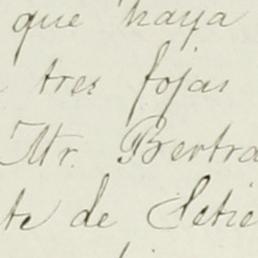 que haya
tres fojas
Mr. Bertra
te de Setie